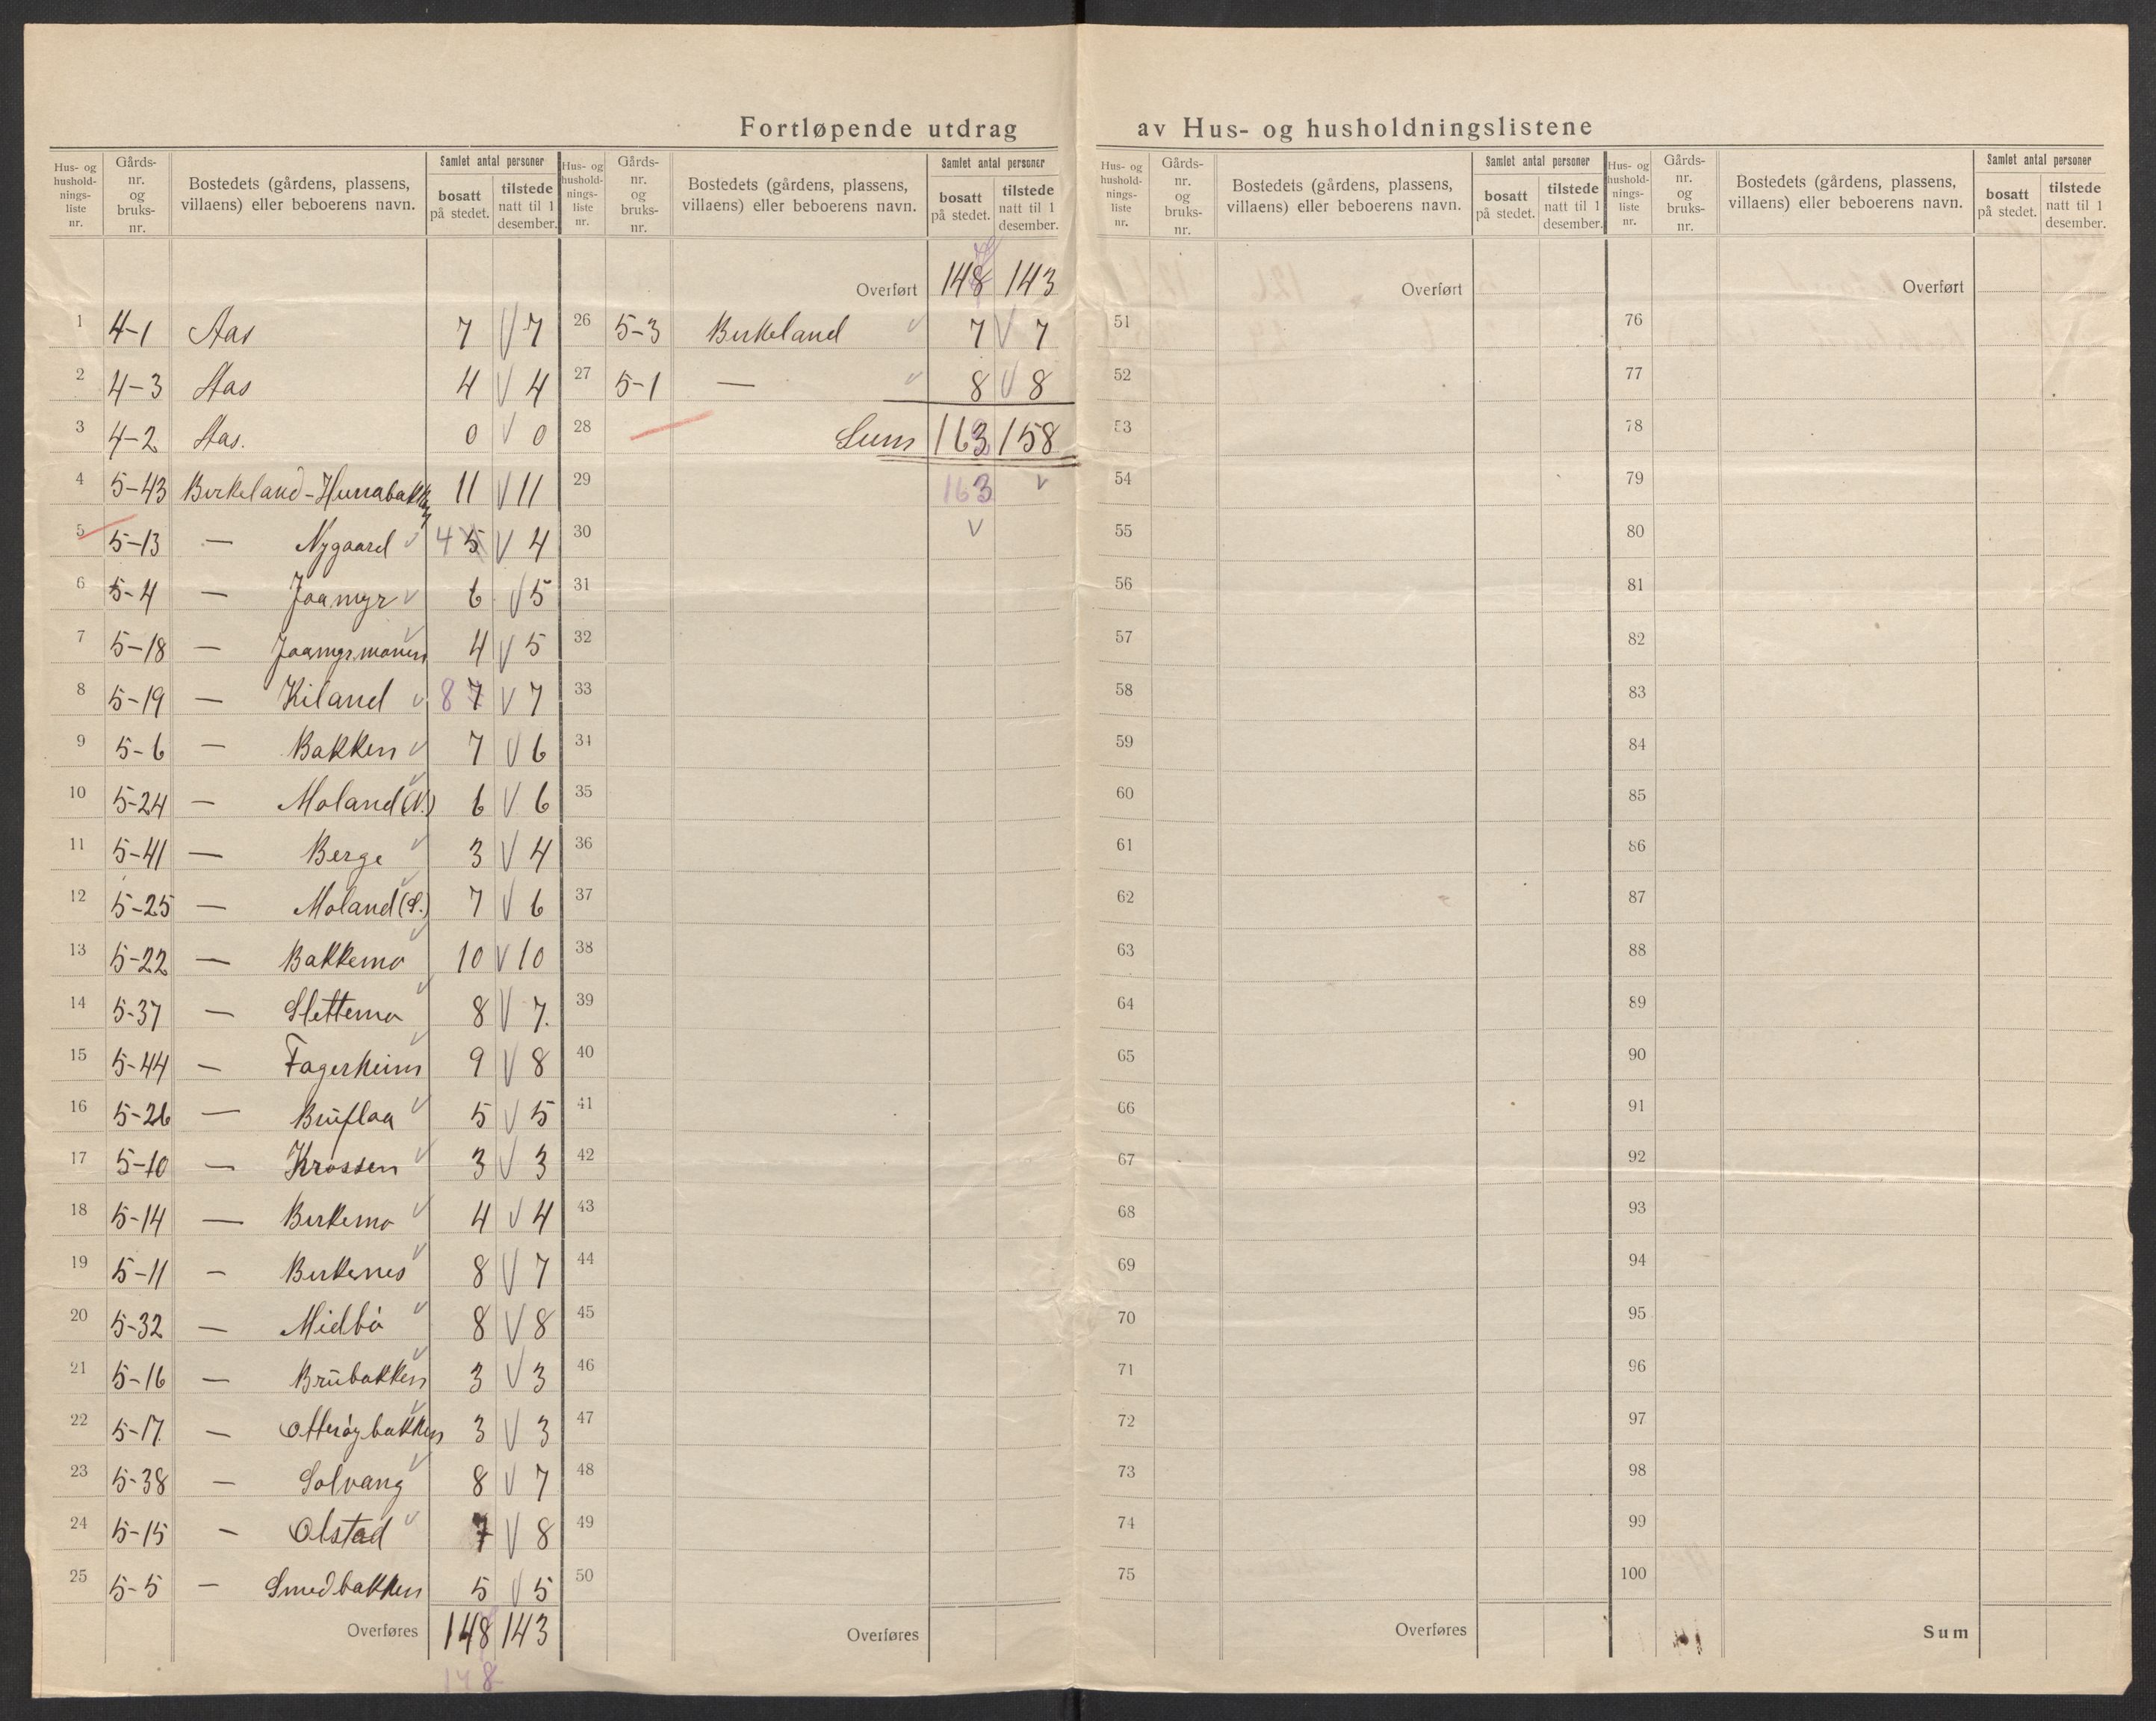 Fortløpende utdrag av Hus- og husholdningslistene
Hus- og hushold- nings- liste nr. | Gårds- nr. og bruks- nr. | Bostedets (gårdens, plassens, villaens) eller beboerens navn. | Samlet antal personer | bosatt på stedet. | tilstede natt til 1 desember.
1 4-1 Aas 7 V 7
2 4-3 Aas 4 V 4
3 4-2 Aas. 0 V 0
4 5-43 Birkeland-Hunabakken 11 V 11
5 5-13 — Nygaard V 4 5 V 4
6 5-4 — Joamyr V 6 V 5
7 5-18 — Joamyrmonen V 4 V 5
8 5-19 — Kiland V 8 7 V 7
9 5-6 — Bakken V 7 V 6
10 5-24 — Moland (N.) V 6 V 6
11 5-41 — Berge V 3 V 4
12 5-25 — Moland (S.) V 7 V 6
13 5-22 — Bakkemo V 10 V 10
14 5-37 — Slettemo V 8 V 7.
15 5-44 — Fagerheim V 9 V 8
16 5-26 — Bruflaa V 5 V 5
17 5-10 — Krossen V 3 V 3
18 5-14 — Birkemo V 4 V 4
19 5-11 — Birkenes V 8 V 7
20 5-32 — Midbø V 8 V 8
21 5-16 — Brubakken V 3 V 3
22 5-17. — Otterøybakken V 3 V 3
23 5-38 — Solvang V 8 V 7
24 5-15 — Olstad V 7 V 8
25 5-5 — Smedbakken 5 V 5
Overføres 148 143
148
Hus- og hushold- nings- liste nr. | Gårds- nr. og bruks- nr. | Bostedets (gårdens, plassens, villaens) eller beboerens navn. | Samlet antal personer | bosatt på stedet. | tilstede natt til 1 desember.
Overført 148 143
26 5-3 Birkeland V 7 V 7
27 5-1 — V 8 V 8
28 Sum 163 158
29 163 V
30 V
31
32
33
34
35
36
37
38
39
40
41
42
43
44
45
46
47
48
49
50
Overføres
Hus- og hushold- nings- liste nr. | Gårds- nr. og bruks- nr. | Bostedets (gårdens, plassens, villaens) eller beboerens navn. | Samlet antal personer | bosatt på stedet. | tilstede natt til 1 desember.
Overført
51
52
53
54
55
56
57
58
59
60
61
62
63
64
65
66
67
68
69
70
71
72
73
74
75
Overføres
Hus- og hushold- nings- liste nr. | Gårds- nr. og bruks- nr. | Bostedets (gårdens, plassens, villaens) eller beboerens navn. | Samlet antal personer | bosatt på stedet. | tilstede natt til 1 desember.
Overført
76
77
78
79
80
81
82
83
84
85
86
87
88
89
90
91
92
93
94
95
96
97
98
99
100
Sum